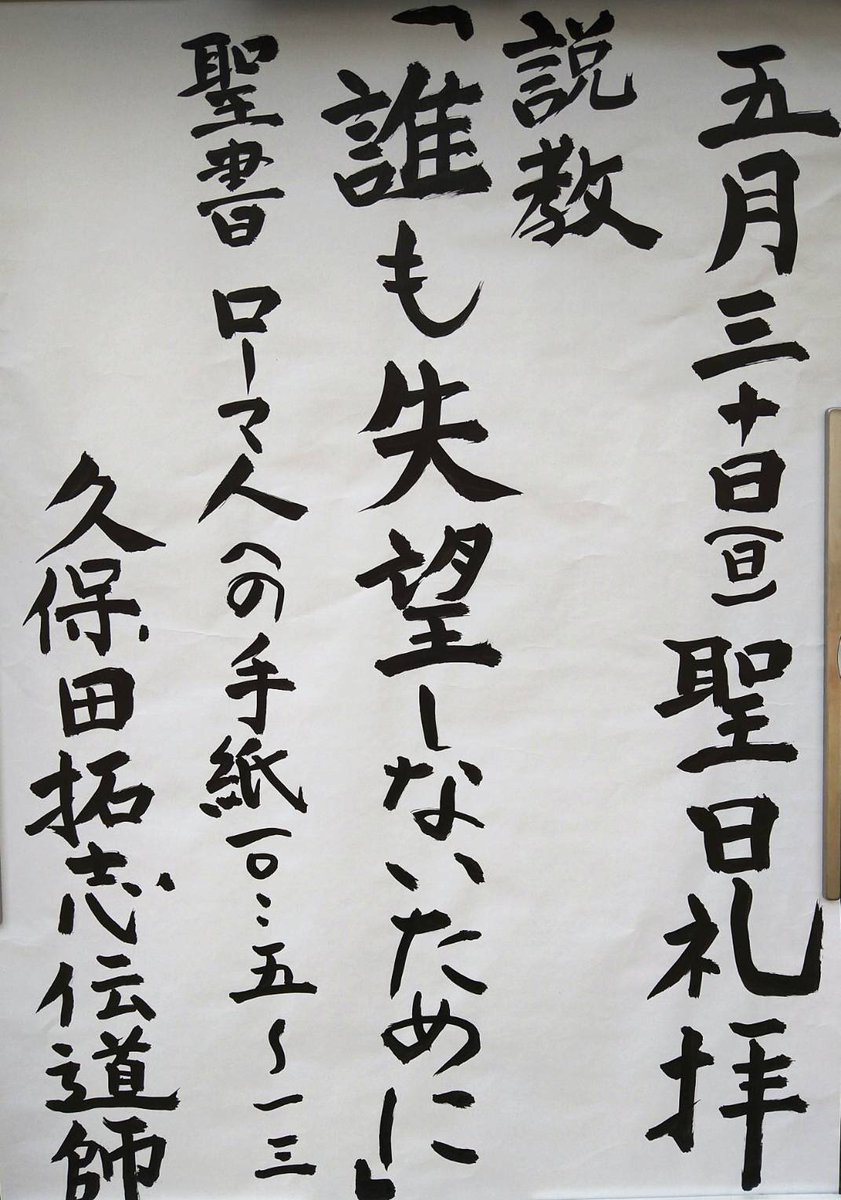 五月三十日(日)聖日礼拝
説教
「誰も失望しないために」
聖書 ローマ人への手紙一〇:五~一三
久保田拓志伝道師